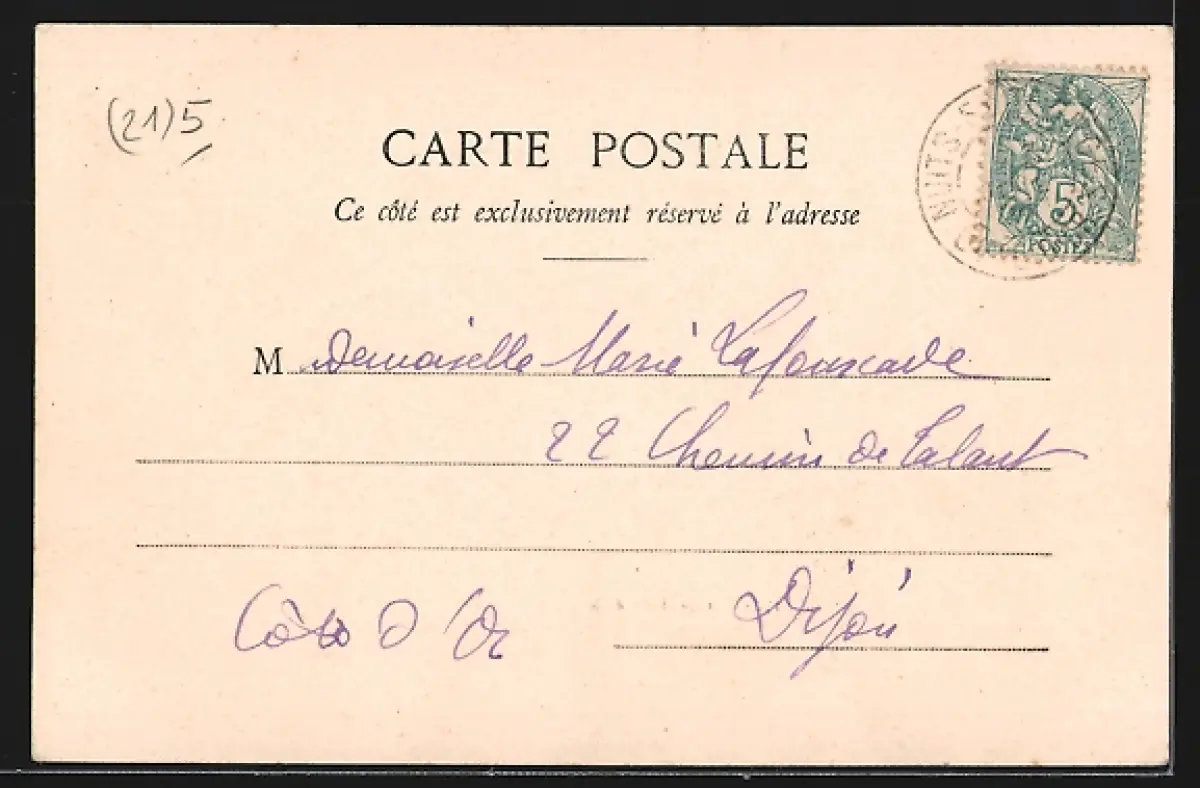 (21)5
CARTE POSTALE
Ce côté est exclusivement réservé à l'adresse
NUITS-S
5
POSTES
M Demoiselle Marie Lafouscade
22 Chemin de Talant
Côte D'Or
Dijon